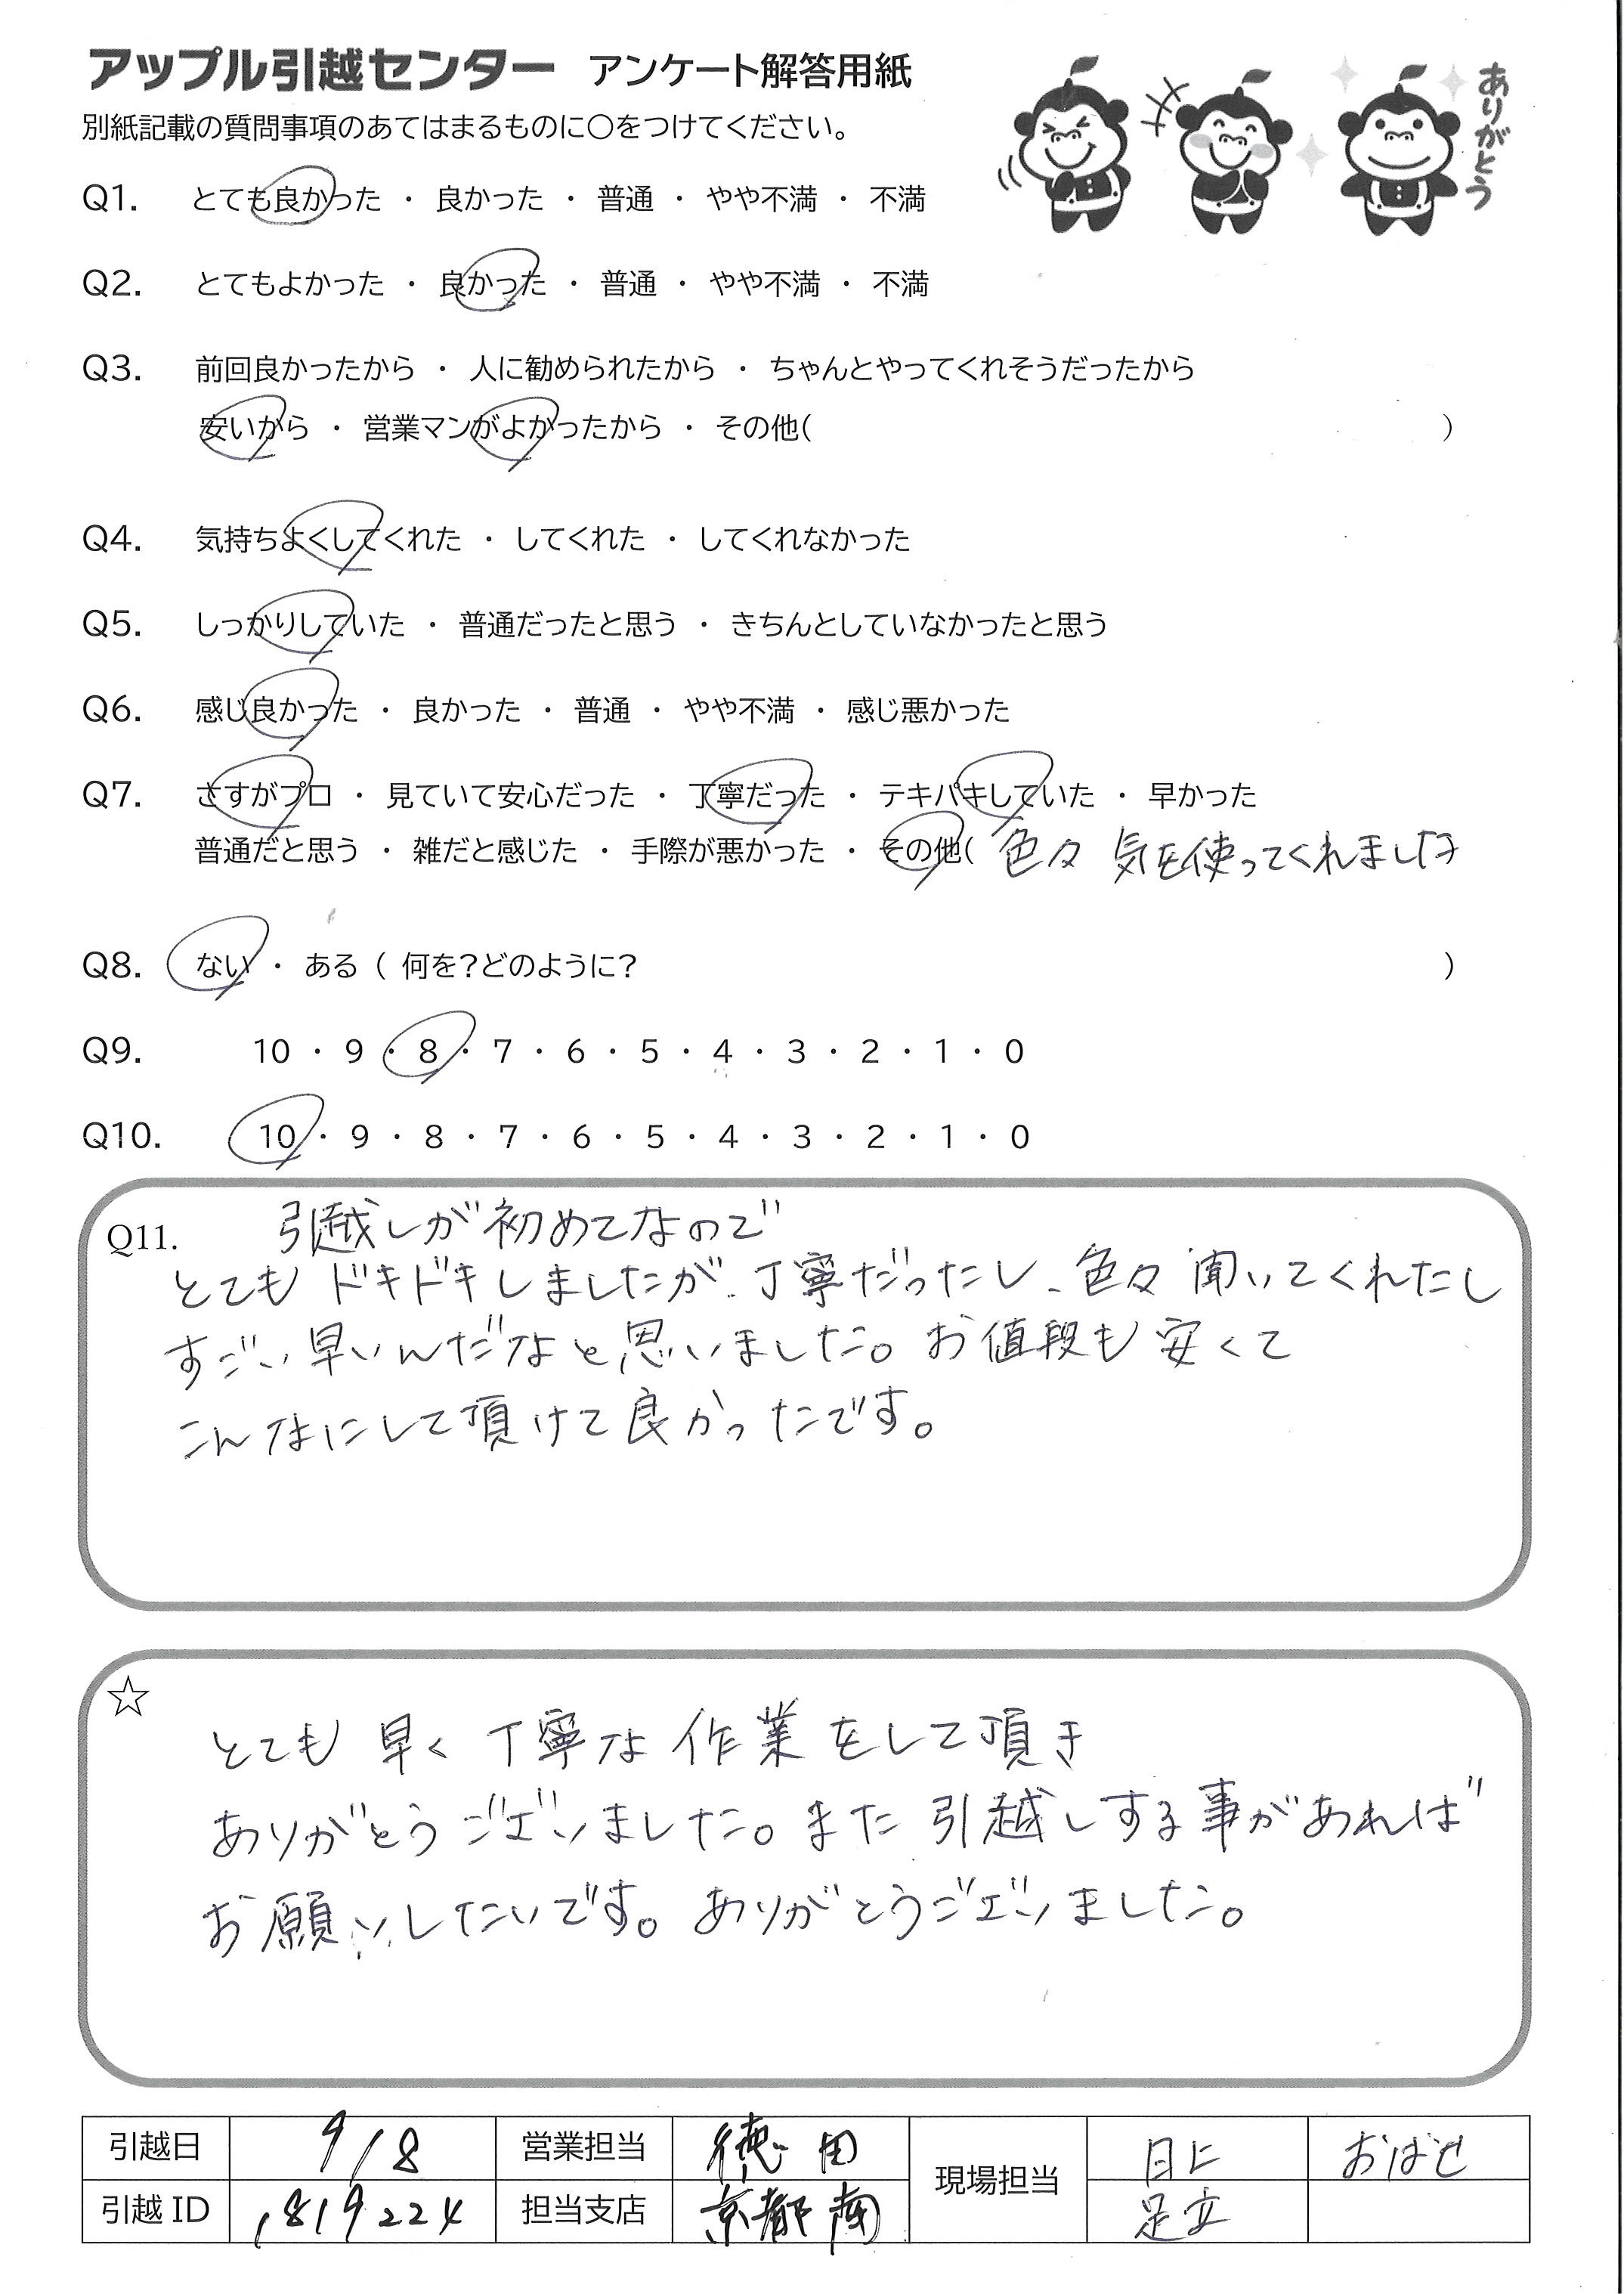 アップル引越センター アンケート解答用紙
別紙記載の質問事項のあてはまるものに○をつけてください。
ありがとう
Q1. とても良かった ・ 良かった ・ 普通 ・ やや不満 ・ 不満
Q2. とてもよかった ・ 良かった ・ 普通 ・ やや不満 ・ 不満
Q3. 前回良かったから ・ 人に勧められたから ・ ちゃんとやってくれそうだったから
安いから ・ 営業マンがよかったから ・ その他( )
Q4. 気持ちよくしてくれた ・ してくれた ・ してくれなかった
Q5. しっかりしていた ・ 普通だったと思う ・ きちんとしていなかったと思う
Q6. 感じ良かった ・ 良かった ・ 普通 ・ やや不満 ・ 感じ悪かった
Q7. さすがプロ ・ 見ていて安心だった ・ 丁寧だった ・ テキパキしていた ・ 早かった
普通だと思う ・ 雑だと感じた ・ 手際が悪かった ・ その他( 色々 気を使ってくれました
Q8. ない ・ ある ( 何を?どのように? )
Q9. 10 ・ 9 ・ 8 ・ 7 ・ 6 ・ 5 ・ 4 ・ 3 ・ 2 ・ 1 ・ 0
Q10. 10 ・ 9 ・ 8 ・ 7 ・ 6 ・ 5 ・ 4 ・ 3 ・ 2 ・ 1 ・ 0
Q11. 引越しが初めてなので
とても ドキドキしましたが、丁寧だったし、色々 聞いてくれたし
すごい早いんだなと思いました。お値段も安くて
こんなにして頂けて良かったです。
☆
とても 早く 丁寧な 作業をして頂き
ありがとうございました。また引越しする事があれば
お願いしたいです。ありがとうございました。
引越日 9/8 営業担当 徳田 現場担当 おばせ
引越 ID 1819224 担当支店 京都南 足立